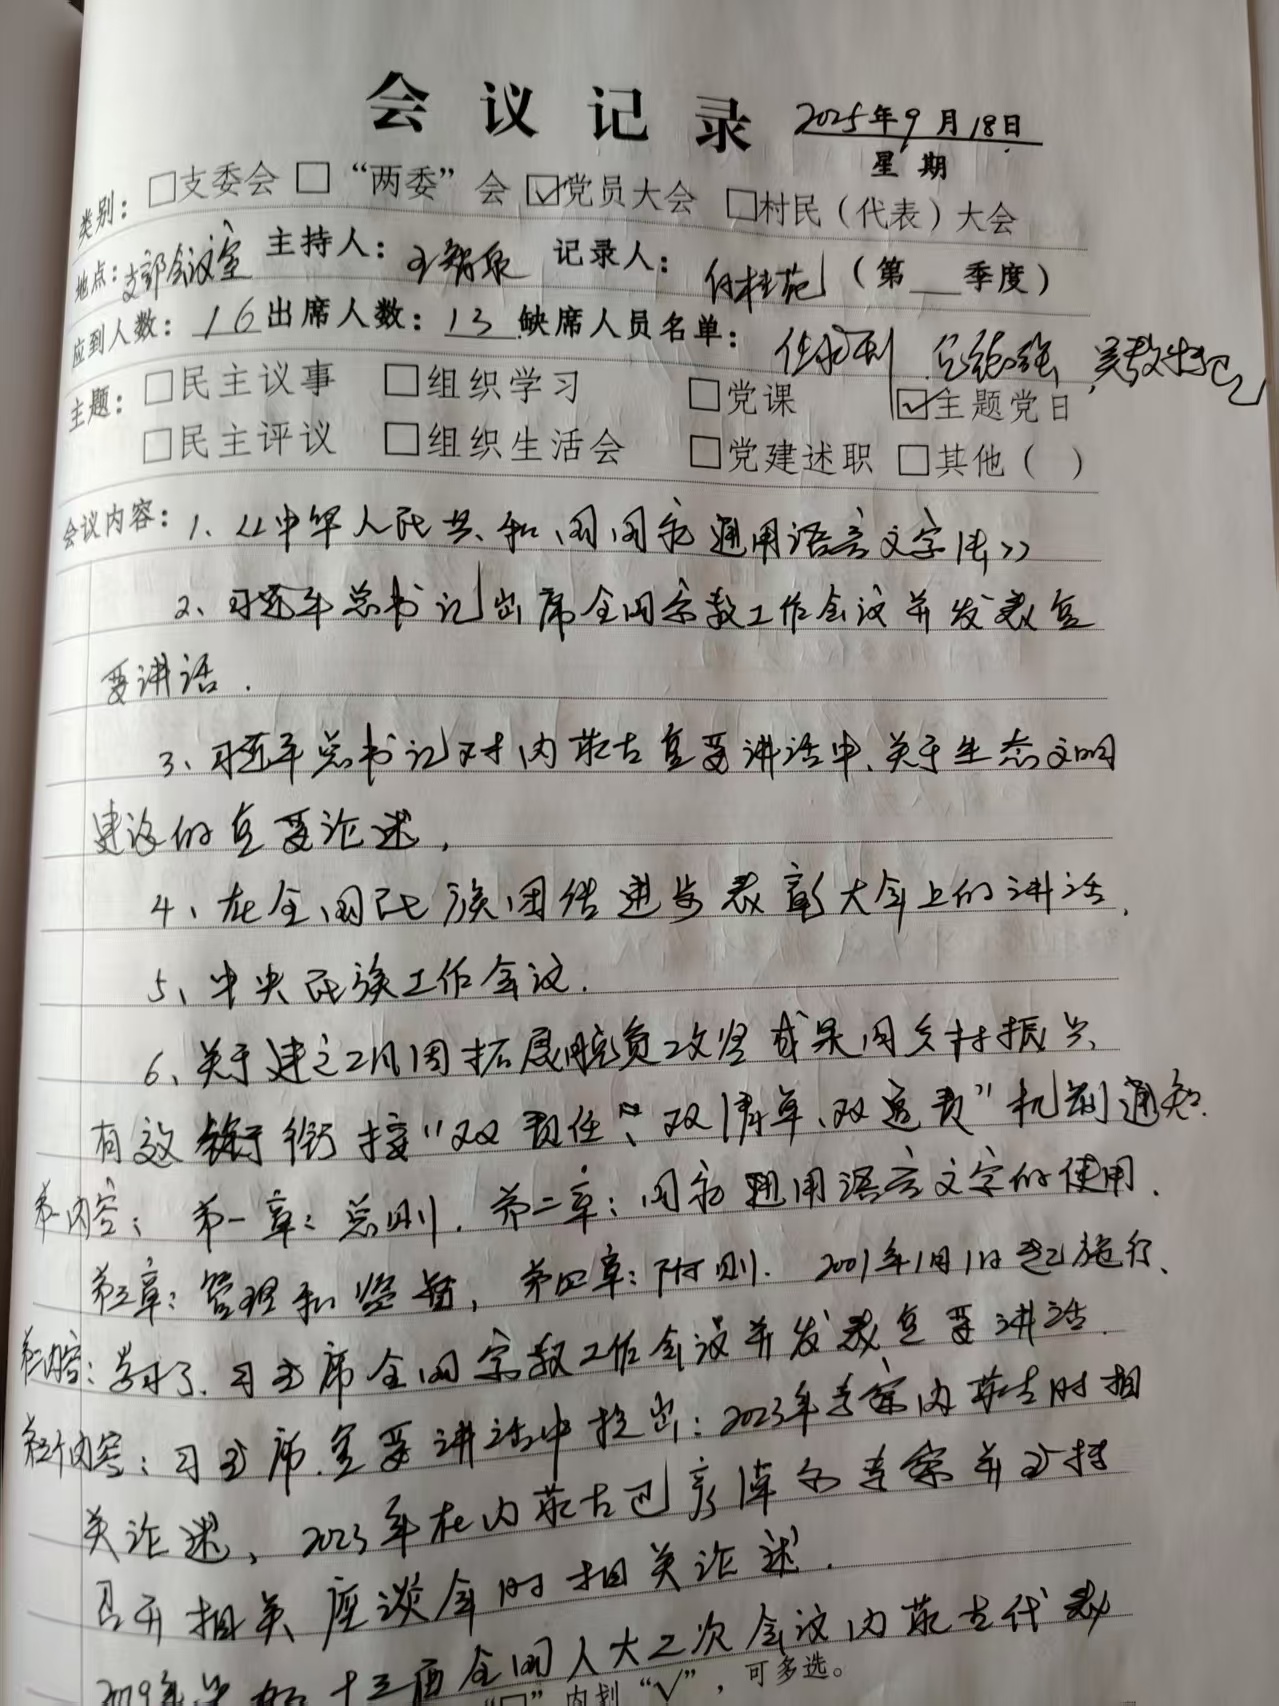 会议记录 2025年9月18日
星期
类别：□支委会 □“两委”会 ☑党员大会 □村民（代表）大会
地点：支部会议室 主持人： 记录人： （第__季度）
应到人数：16 出席人数：13 缺席人员名单：
主题：□民主议事 □组织学习 □党课 ☑主题党日
□民主评议 □组织生活会 □党建述职 □其他（ ）
会议内容：1、《中华人民共和国国家通用语言文字法》
2、习近平总书记出席全国宗教工作会议并发表重
要讲话.
3、习近平总书记对内蒙古重要讲话中、关于生态文明
建设的重要论述,
4、在全国民族团结进步表彰大会上的讲话,
5、中央民族工作会议.
6、关于建立巩固拓展脱贫攻坚成果同乡村振兴
有效衔接“双责任、双清单、双追责”机制通知.
第一内容：第一章：总则. 第二章：国家通用语言文字的使用.
第三章：管理和监督, 第四章：附则. 2001年1月1日起施行.
第二内容：学习了. 习主席全国宗教工作会议并发表重要讲话.
第三个内容：习主席重要讲话中指出：2023年考察内蒙古时相
关论述、2023年在内蒙古巴彦淖尔考察并主持
召开相关座谈会时相关论述.
2019年 十三届全国人大二次会议内蒙古代表
“□”内划“√”，可多选。